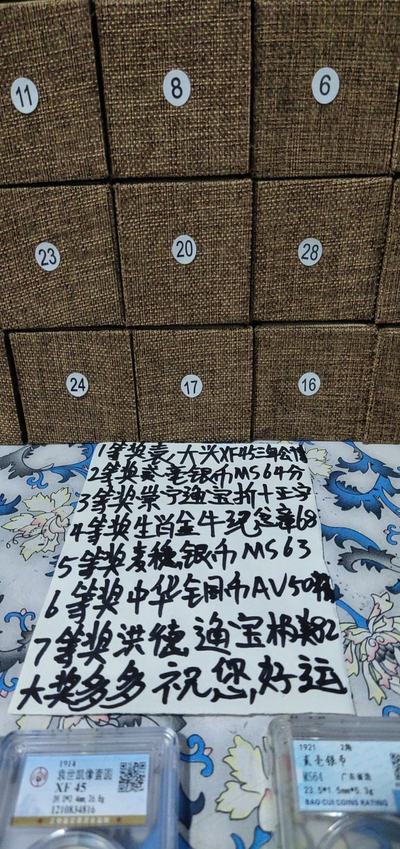 11 8 6
23 20 28
24 17 16
1等奖袁大头XF45三年
2等奖贰毫银币MS64分
3等奖崇宁通宝折十王字
4等奖生肖金牛纪念章68
5等奖麦穗银币MS63
6等奖中华铜币AV50
7等奖洪德通宝极美82
大奖多多祝您好运
1914
袁世凯像壹圆
XF 45
1210834816
1921 2角
贰毫银币
MS64 广东省造
23.5*1.5mm*5.3g
BAO CUI COINS RATING